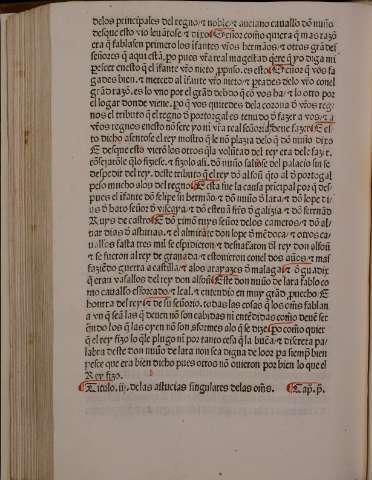 delos principales del regno ⁊ noble ⁊ anciano cauallo dõ nuño
desque esto vio leuãtose ⁊ dixo Señor como quiera q̃ mas razõ
era q̃ fablasen primero los ifantes vr̃os hermãos ⁊ otros grãdes
señores q̃ aqui estã. po pues vr̃a real magestad q̃ere q̃ yo diga mi
esto es Señor q̃
gades bien ⁊ merced al ifante vr̃o nieto ⁊
grãd razõ. es lo vno por el grãd debdo q̃ cõ vos ha ⁊ lo otro por
el logar donde viene. po q̃ vos quitedes dela corona d̃ vr̃os reg
nos el tributo q̃ el regno d̃ portogal es tenudo d̃ fazer a vos ⁊ a
vr̃os regnos enesto nõ sere yo ni vr̃a real señoria deue fazer E es
to dicho asentose el rey mostro q̃ le nõ plazia delo q̃ dõ nuño dixo
E desque esto vierõ los otros q̃ la volũtad del rey era dele fazer.
cõsejarõle q̃lo fiziese. ⁊ fizolo asi. dõ nuño saliose del palacio sin se
despedir del rey. deste tributo q̃ el rey dõ alfoñ q̃to al d̃ portogal
peso mucho alos del regno E esta fue la causa pricipal por q̃ des
pues el ifante dõ felipe su hermão ⁊ dõ nuño d̃ lara ⁊ dõ lope di
as d̃ haro señor d̃ viscaya ⁊ dõ esteuã frñs d̃ galizia ⁊ dõ ferrãd
Ruys de castro E dõ ximõ ruys señor delos cameros ⁊ dõ al
uar dias d̃ asturias. ⁊ el almirãte don lope d̃ mẽdoça ⁊ otros ca
uallos fasta tres mil se espidieron ⁊ desnaturarõ dl rey don alfoñ
⁊ se fueron al rey de granada ⁊ estouieron conel dos años ⁊ mal
faziẽdo guerra a castilla ⁊ alos arayazes d̃ malaga ⁊ d̃ guadix
q̃ erau vasallos del rey don alfoñ Este don nuño de lara fablo co
mo cauallo esforcado ⁊ leal. ⁊ entendido en muy grãd prouecho E
honrra del rey ⁊ de su señorio. todas las cosas q̃ los om̃s fablan
a vn q̃ seã las q̃ deuen nõ son cabidas ni entẽdidas como deuẽ ser
q̃ndo los q̃ las oyen nõ son sformes alo q̃ se dize po como quier
q̃ el rey fizo lo q̃le plugo ni por tanto cesa q̃ la buẽa ⁊ discreta pa
labra deste don nuño de lara non sea digna de loor pa siemp̃ bien
pesce que era bien dicho pues otros nõ ouieron por bien lo que el
Rey fizo.
Titolo. ij. delas astucias singulares delos om̃s. Cap̃. p̃.